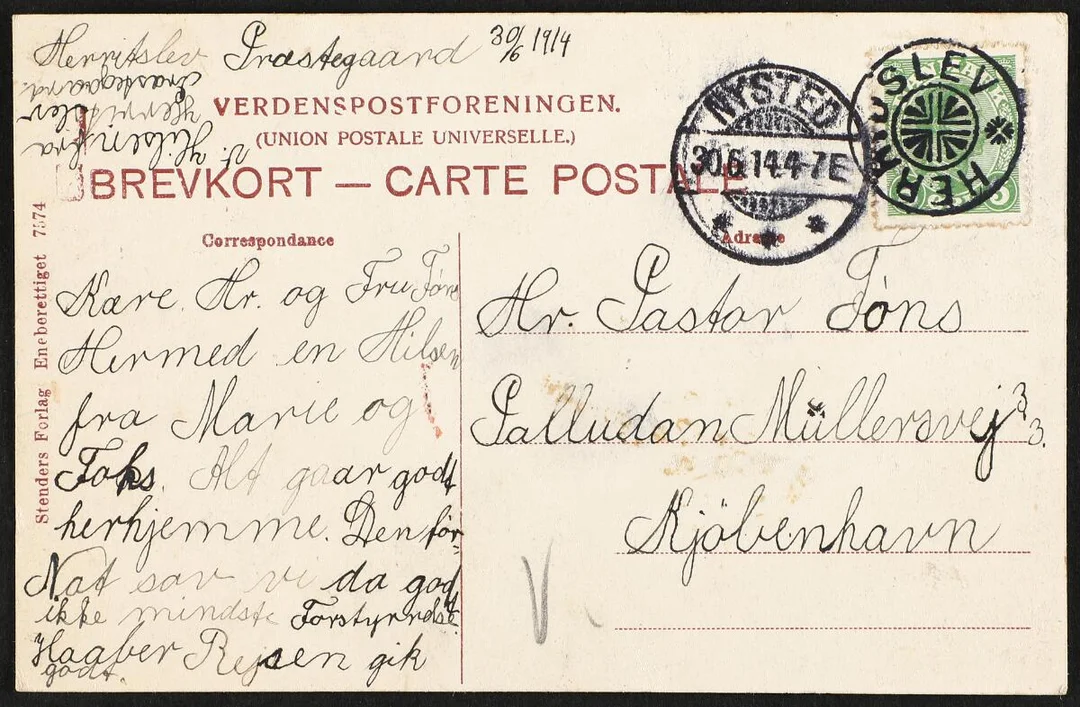 Herritslev Præstegaard 30/6 1914
Hilsen fra
Herritslev
Præstegaard
VERDENSPOSTFORENINGEN.
(UNION POSTALE UNIVERSELLE.)
BREVKORT — CARTE POSTALE
NYSTED
30.6.14.4-7E
HERRIDSLEV
5
Correspondance
Adresse
Kære Hr. og Fru Føns
Hermed en Hilsen
fra Marie og
Foks. Alt gaar godt
herhjemme. Den før-
Nat sov vi da godt
ikke mindste Forstyrrelse.
Haaber Rejsen gik
godt.
Hr. Pastor Føns
Palludan Müllersvej 3 3.
Kjøbenhavn
Stenders Forlag Eneberettiget 7574